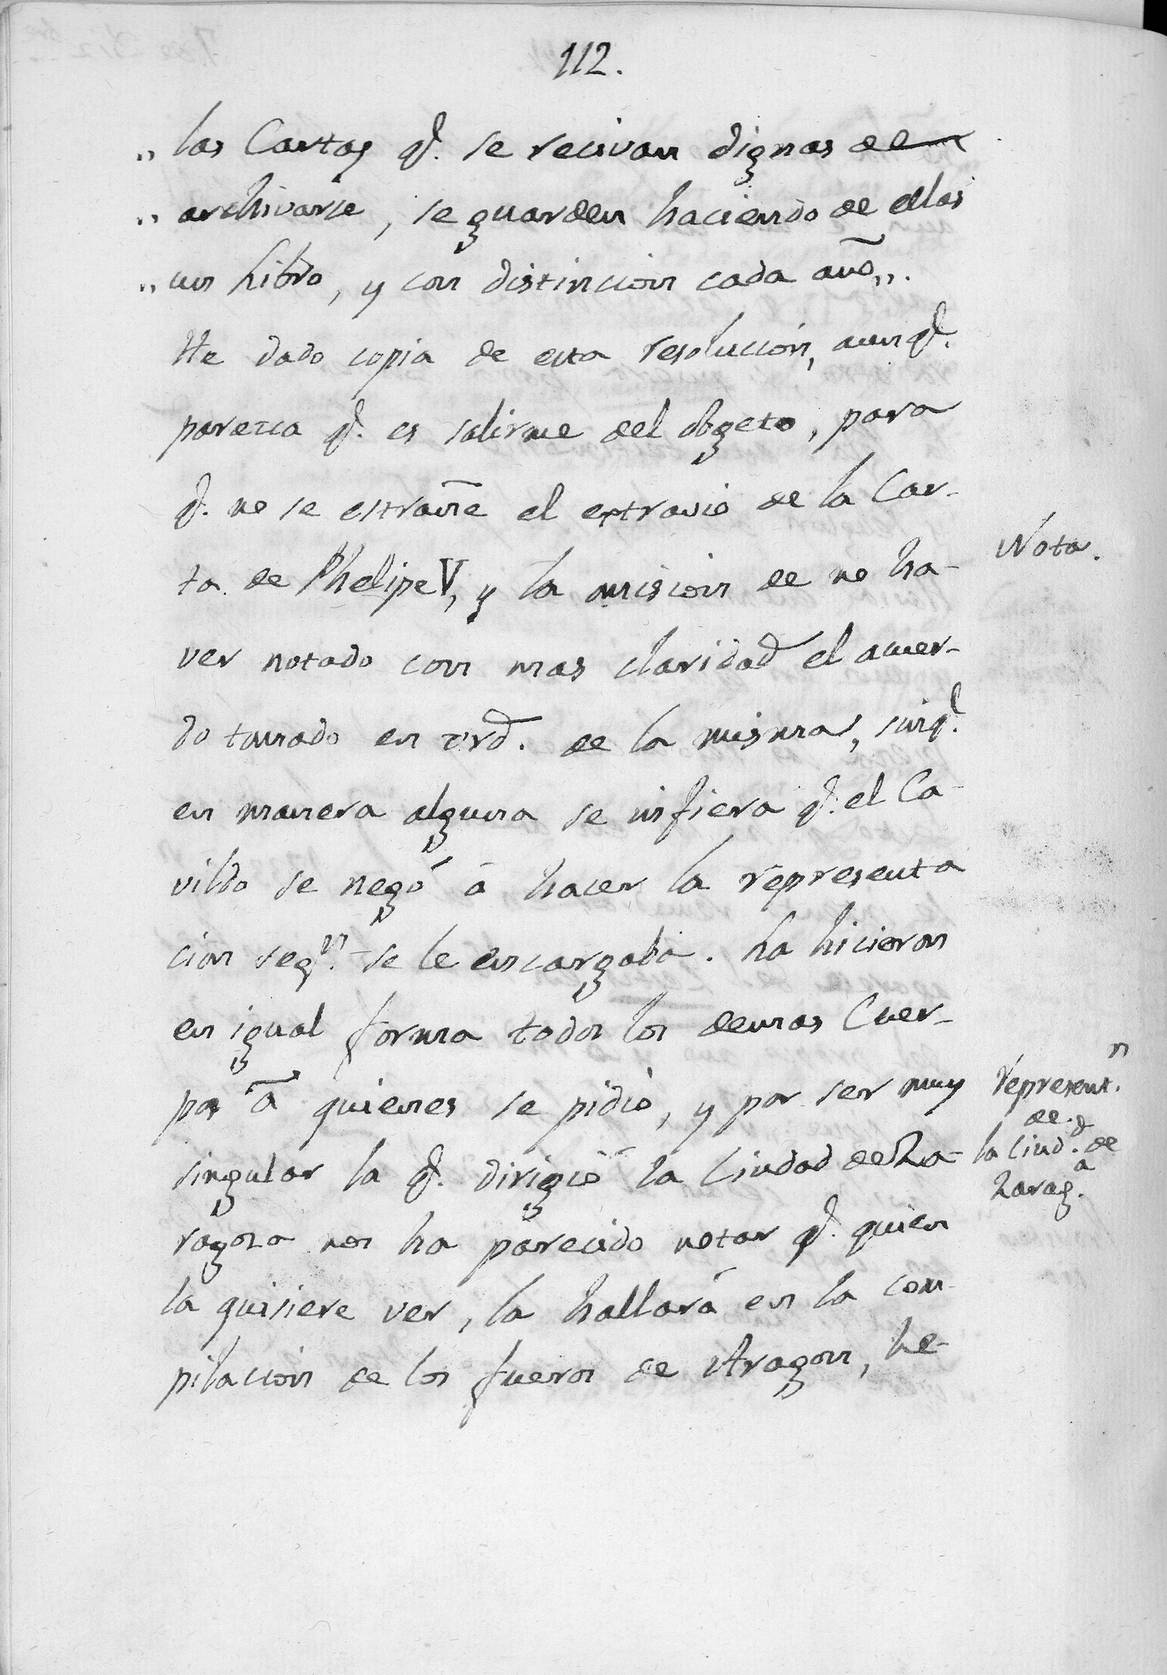 112.
„ las Cartas q.e se recivan dignas de
„ archivarse, se guarden haciendo de ellas
„ un Libro, y con distincion cada año„.
He dado copia de esta resolución, aunq.e
parezca q.e es salirme del obgeto, para
q.e no se estrañe el extravio de la Car-
ta de Phelipe V, y la omision de no ha-
Nota.
ver notado con mas claridad el acuer-
do tomado en vrd. de la misma, sinq.e
en manera alguna se infiera q.e el Ca-
vildo se negó á hacer la representa
cion seg.n se le encargaba. La hicieron
en igual forma todos los demas Cuer-
pos á quienes se pidió, y por ser muy
singular la q.e dirigió la Ciudad de Za-
represent.n
de
la Ciud.d de
Zarag.a
ragoza nos ha parecido notar q.e quien
la quisiere ver, la hallará en la com-
pilacion de los fueros de Aragon, he-